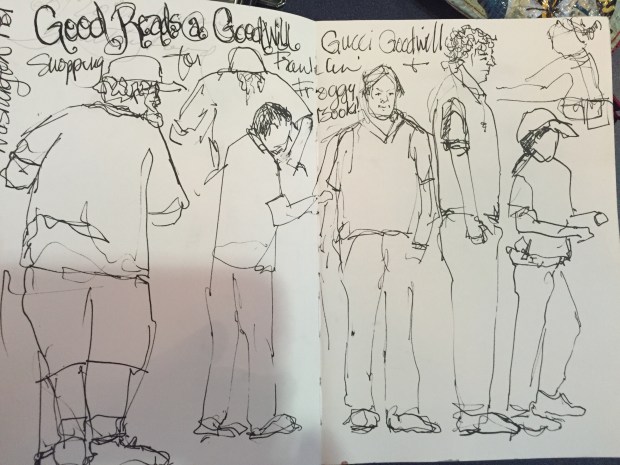 Good Reads @ Goodwill
Shopping for
Gucci Goodwill
+
Froggy
Books
Washington